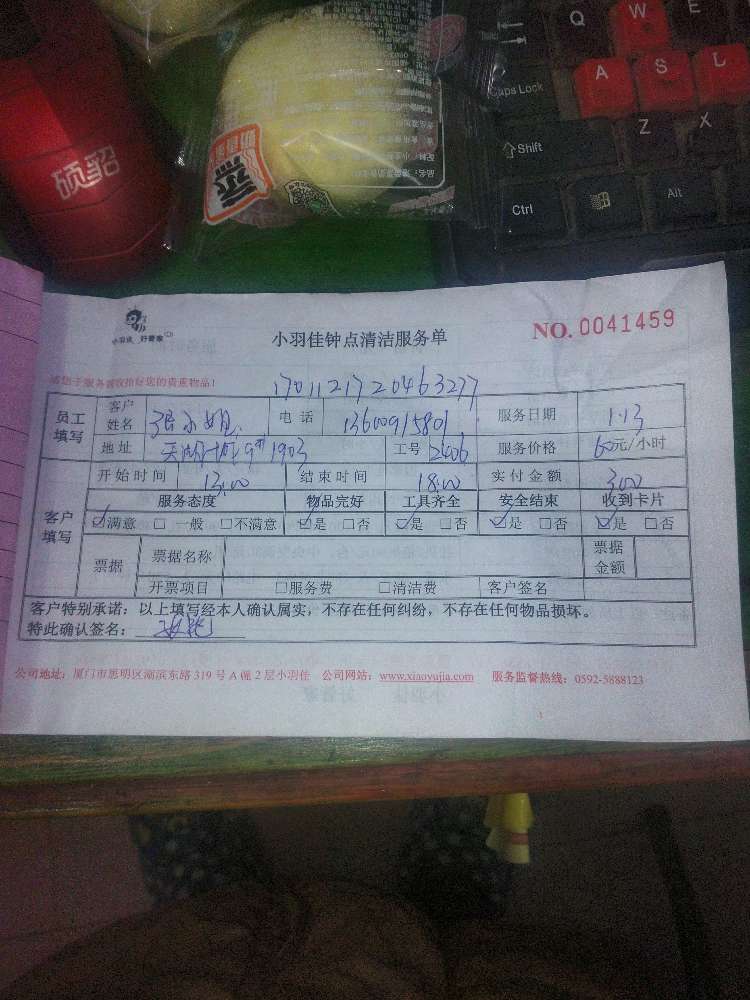 硕貂
Q W E
Caps Lock A S L
Shift Z X
Ctrl Alt
小羽佳 好管家
小羽佳钟点清洁服务单
NO. 0041459
请您于服务前收拾好您的贵重物品!
1701121720463277
员工填写 客户姓名 张小姐 电话 13600915801 服务日期 1.13
地址 9# 1903 工号 2406 服务价格 60元/小时
客户填写 开始时间 13:00 结束时间 18:00 实付金额 300
服务态度 物品完好 工具齐全 安全结束 收到卡片
☑满意 □一般 □不满意 ☑是 □否 ☑是 □否 ☑是 □否 ☑是 □否
票据 票据名称 票据金额
开票项目 □服务费 □清洁费 客户签名
客户特别承诺:以上填写经本人确认属实,不存在任何纠纷,不存在任何物品损坏。
特此确认签名:
公司地址:厦门市思明区湖滨东路319号A幢2层小羽佳 公司网站:www.xiaoyujia.com 服务监督热线:0592-5888123